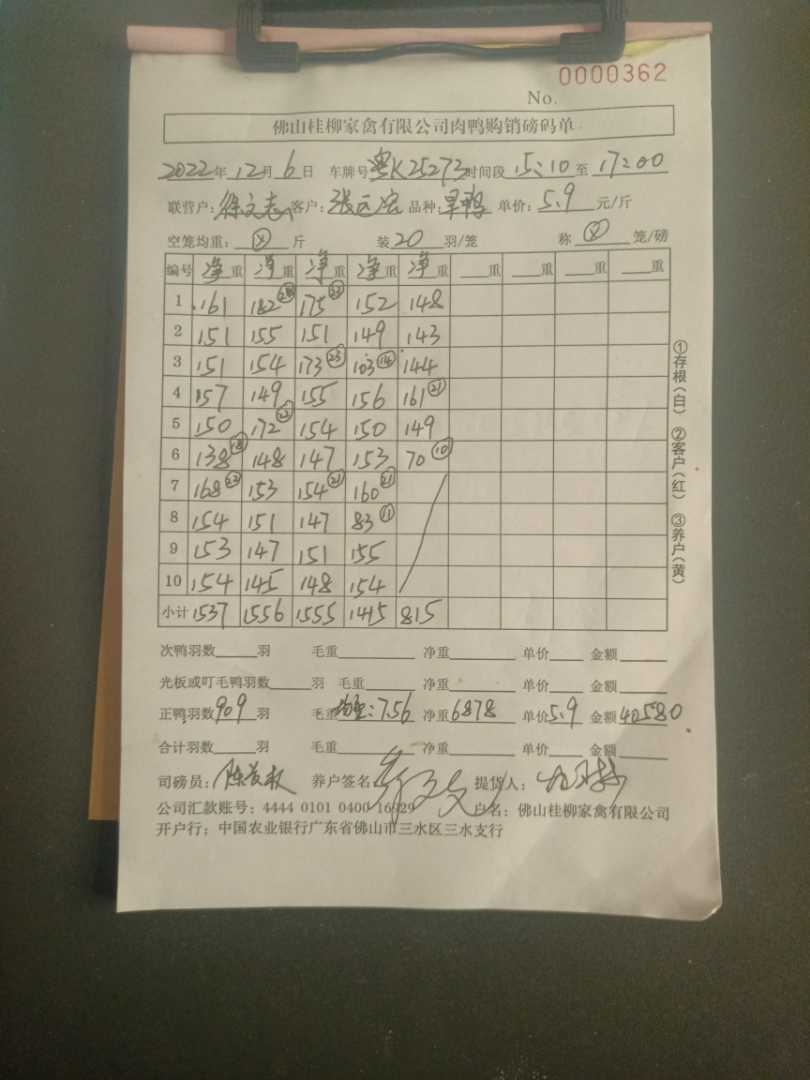 0000362
No.
佛山桂柳家禽有限公司肉鸭购销磅码单
2022年12月6日 车牌号粤K25273时间段15:10至17:00
联营户:徐文志 客户: 品种: 单价:5.9元/斤
空笼均重:斤 装20羽/笼 称笼/磅
编号 净重 净重 净重 净重 净重 重 重 重 重
1 161 182 175㉓ 152 148
2 151 155 151 149 143
3 151 154 173㉓ 103⑭ 144
4 157 149 155 156 161㉑
5 150 172 154 150 149
6 138⑱ 148 147 153 70⑩
7 168 153 154㉑ 160㉑
8 154 151 147 83⑪
9 153 147 151 155
10 154 145 148 154
小计 1537 1556 1555 1415 815
次鸭羽数羽 毛重 净重 单价 金额
光板或叮毛鸭羽数羽 毛重 净重 单价 金额
正鸭羽数909羽 毛重均重:7.56 净重6878 单价5.9 金额40580
合计羽数羽 毛重 净重 单价 金额
司磅员: 养户签名 提货人:
公司汇款账号: 4444 0101 0400 16829 户名: 佛山桂柳家禽有限公司
开户行: 中国农业银行广东省佛山市三水区三水支行
①存根(白) ②客户(红) ③养户(黄)